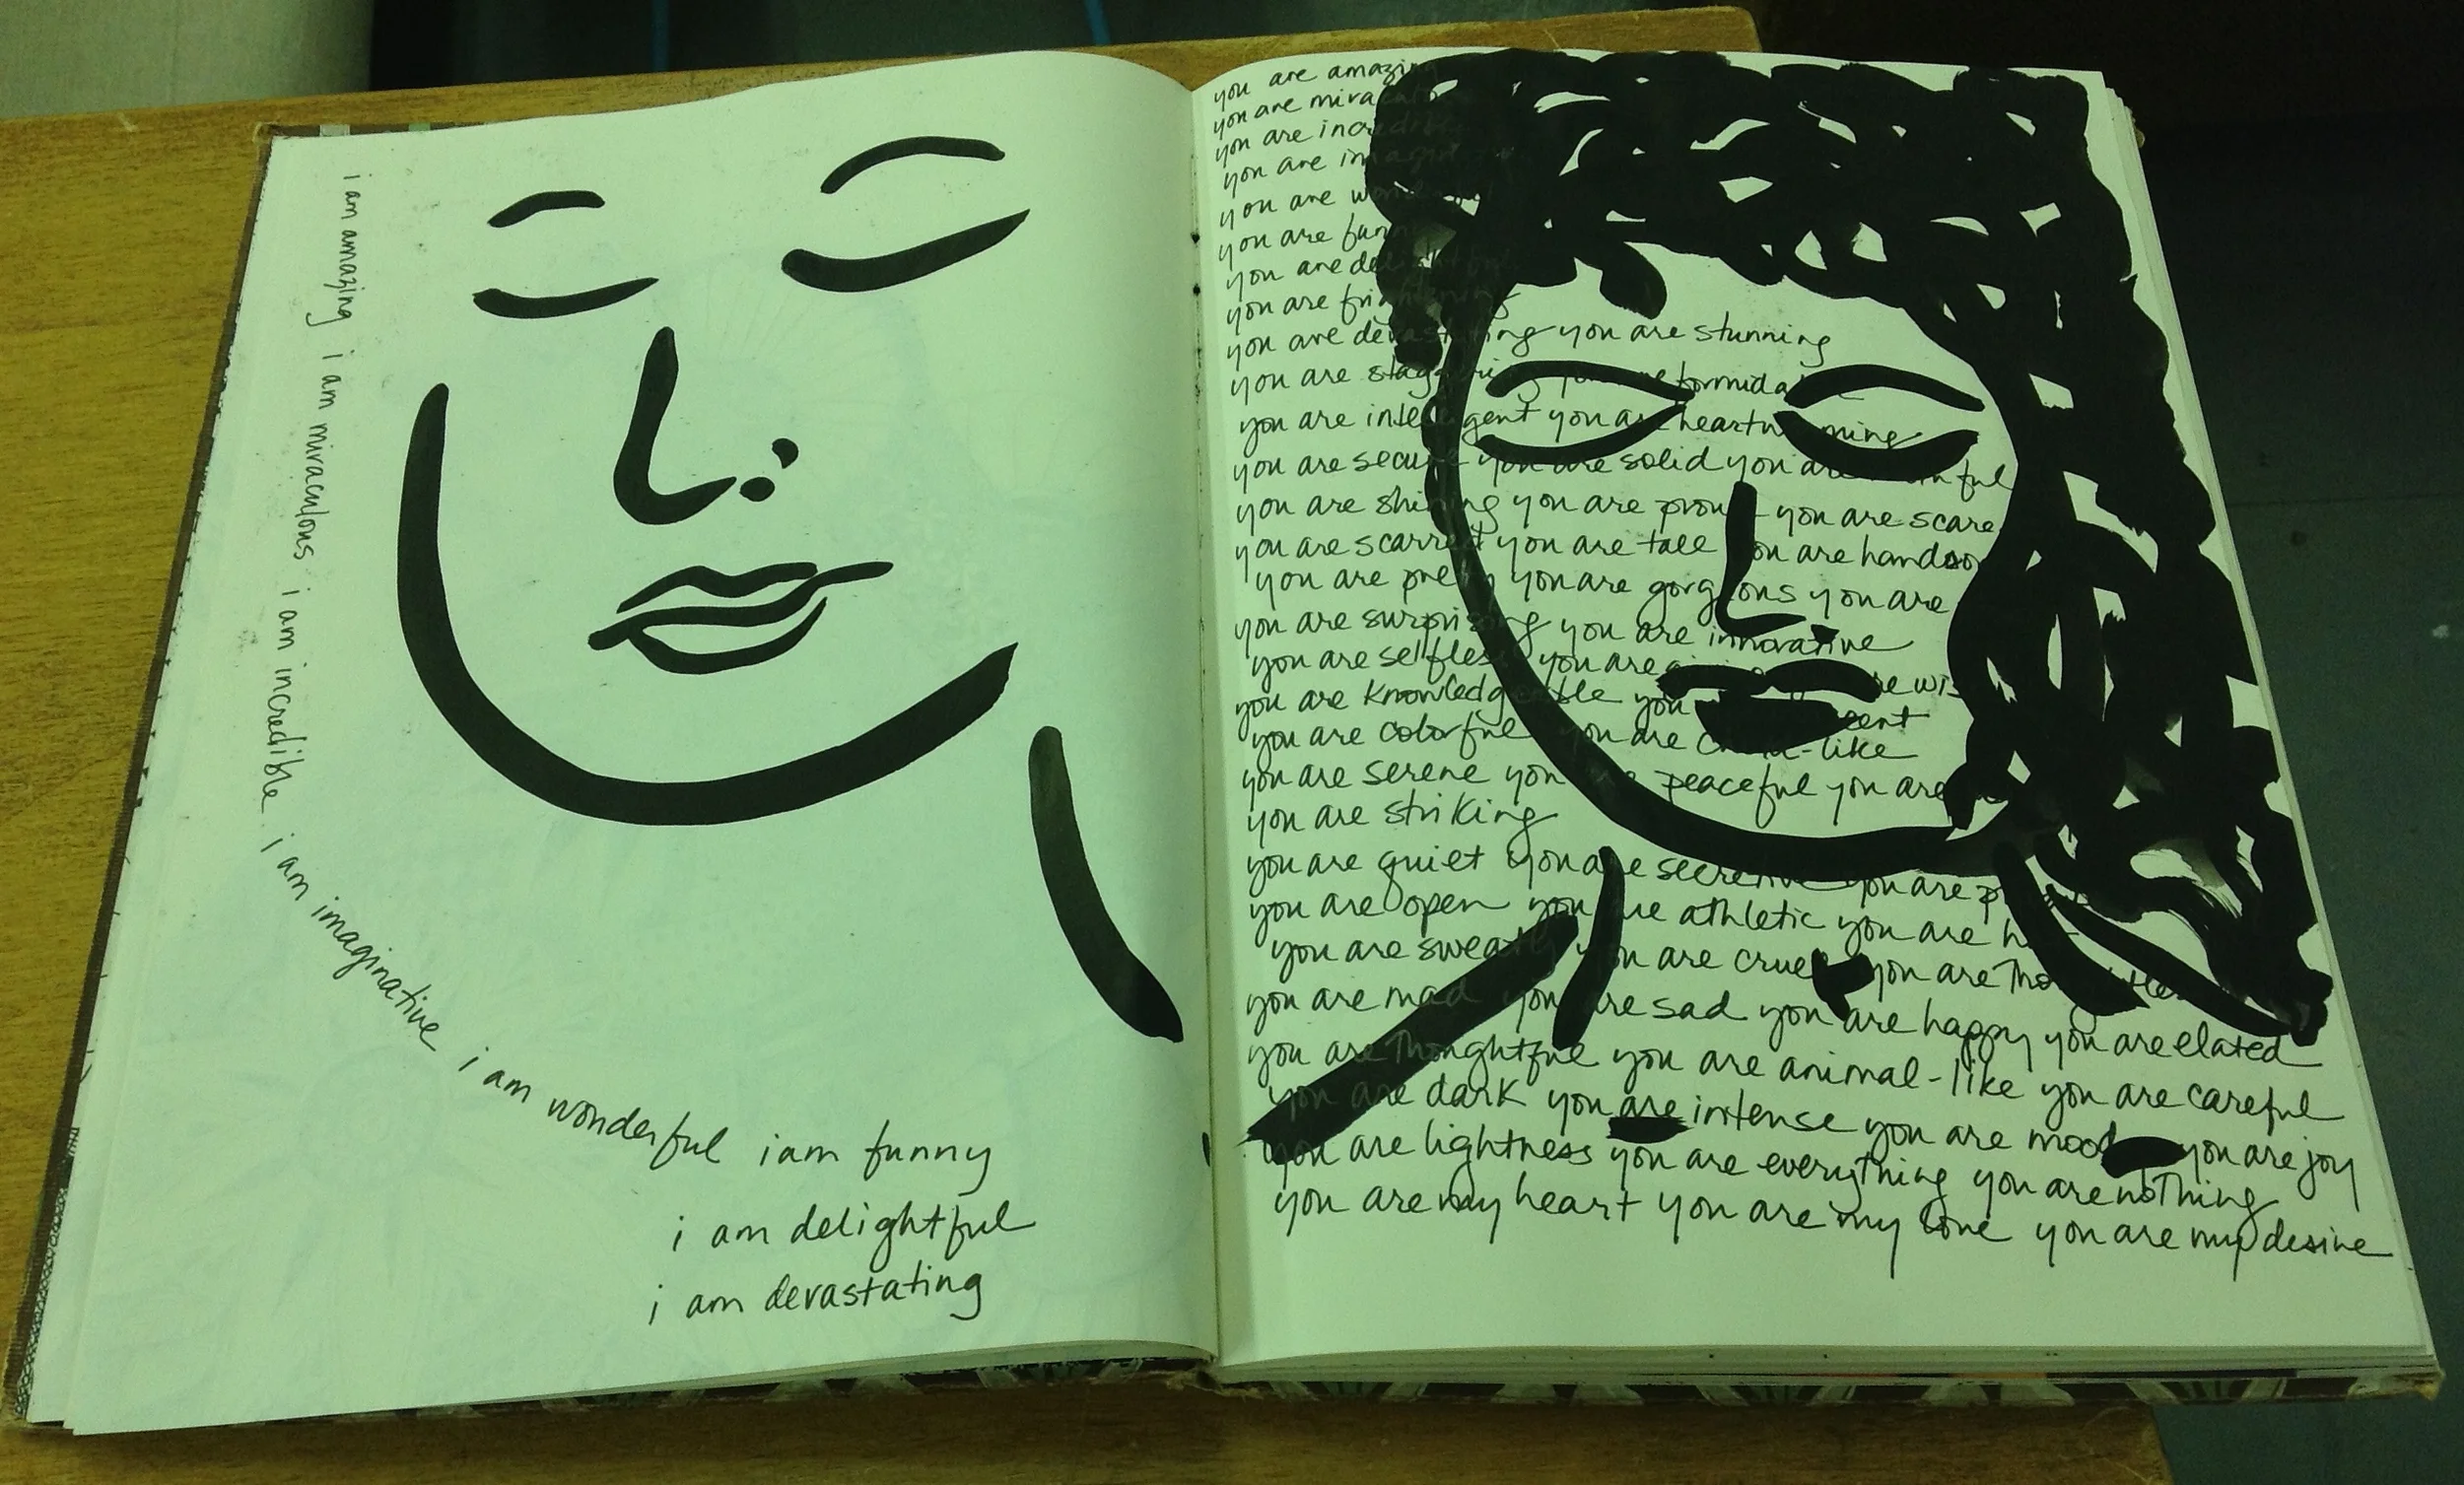 i am amazing i am miraculous i am incredible i am imaginative i am wonderful i am funny
i am delightful
i am devastating
you are amazing
you are miraculous
you are incredible
you are
you are
you are funny
you are delightful
you are frightening
you are devastating you are stunning
you are staggering you are formidable
you are intelligent you are heartwarming
you are secure you are solid you are
you are shining you are proud you are scare
you are scarred you are tall you are handsom
you are pretty you are gorgeous you are
you are surprising you are innovative
you are selfless you are
you are knowledgeable you
you are colorful you are child-like
you are serene you are peaceful you are
you are striking
you are quiet you are secretive you are
you are open you are athletic you are
you are sweaty you are cruel you are
you are mad you are sad you are happy you are elated
you are thoughtful you are animal-like you are careful
you are dark you are intense you are mood you are joy
you are lightness you are everything you are nothing
you are my heart you are my love you are my desire